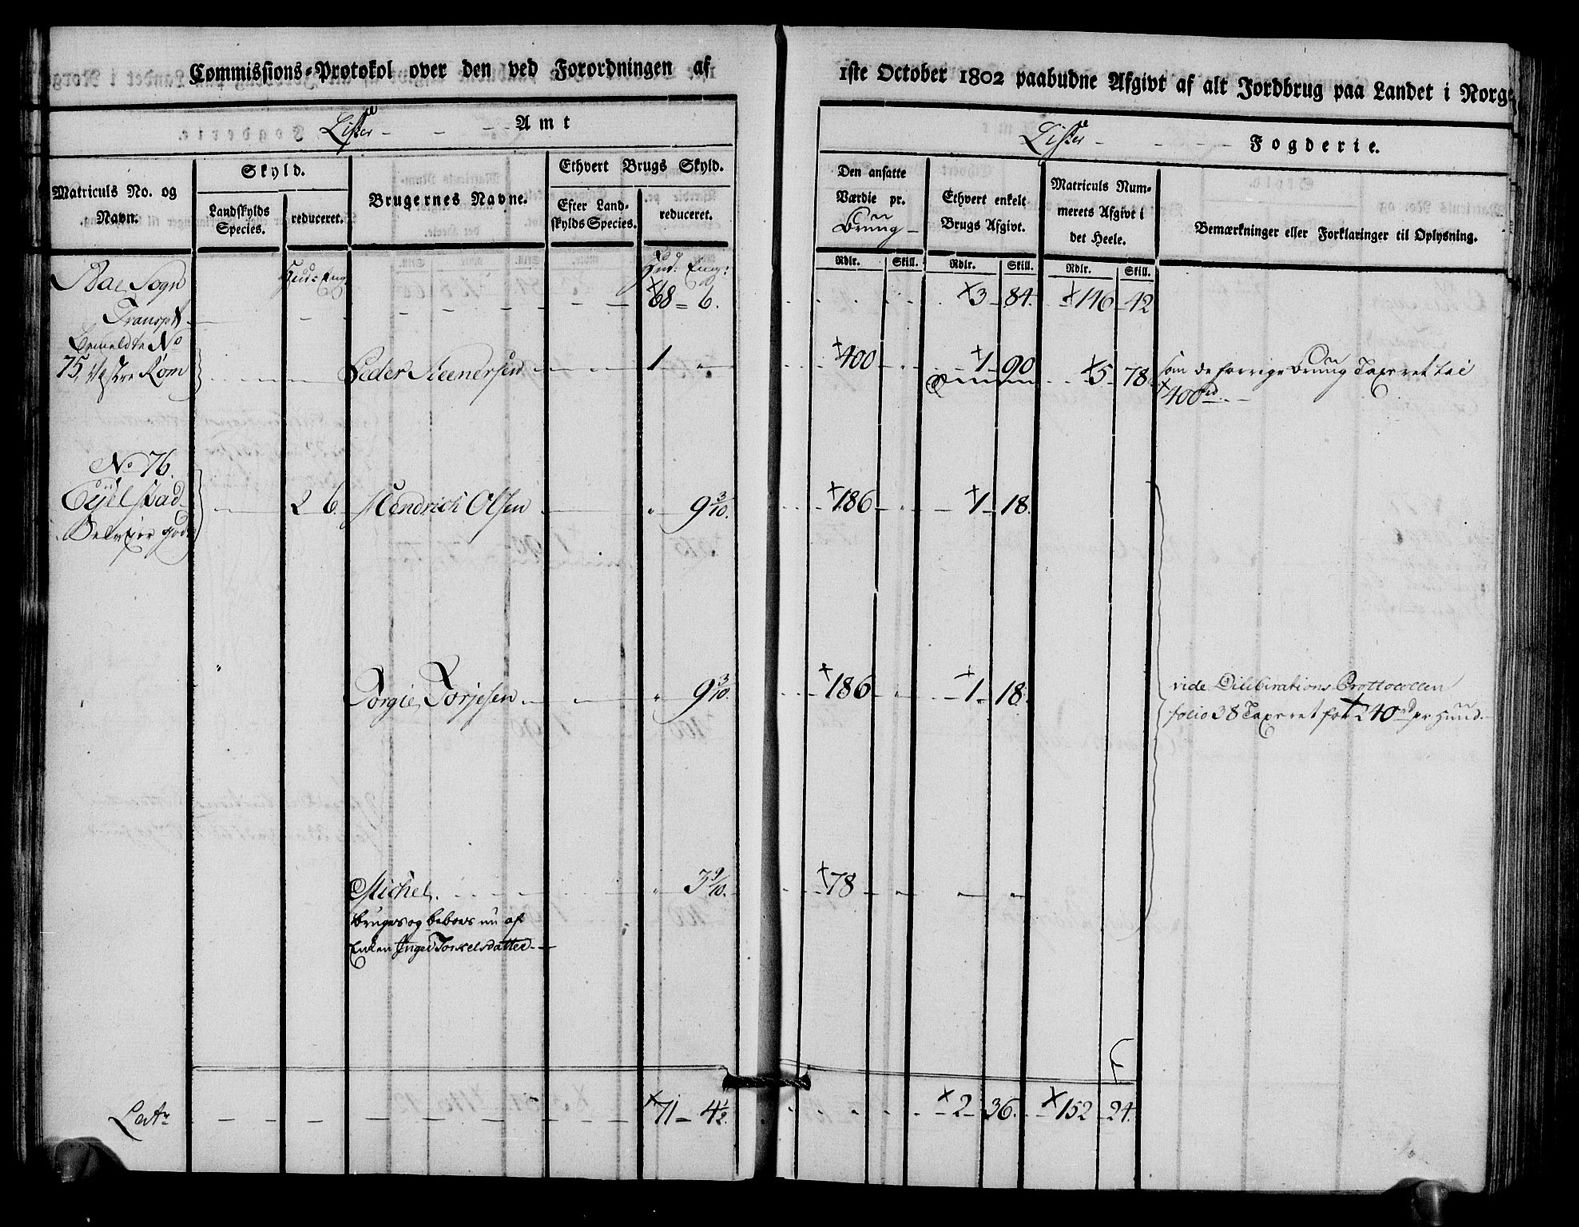 Commissions-Protokol over den ved Forordningen af 1ste October 1802 paabudne Afgivt af alt Jordbrug paa Landet i Norge
Lister - - - Amt
Lister - - - Fogderie.
Matriculs No. og Navn.
Skyld.
Landskylds Species.
reduceret.
Brugernes Navne.
Ethvert Brugs Skyld.
Efter Landskylds Species.
reduceret.
Den ansatte Værdie pr. Brug
Rdlr. Skill.
Ethvert enkelt Brugs Afgivt.
Rdlr. Skill.
Matriculs Nummerets Afgivt i det Heele.
Rdlr. Skill.
Bemærkninger eller Forklaringer til Oplysning.
Sogn Hud: Eng Hud: Eng:
Transpt 68 - 6. 3 - 84. 146 - 42
Anmeldte No
75, Vestre Røm Peder 1 " 400 1 - 90 5 - 78 som de forrige Brug Taxeret til
400 rd.
No 76.
Eyelstad 2 6. Hendrich Olsen " 9 3/10. 186 1 - 18.
Torgie Torjesen " 9 3/10. 186 1 - 18. vide Dilibirations Prottocollen
folio 38 Taxeret for 240 rd pr Hud.
Michel. " 3 9/10. 78 " "
bruges og beboes nu af
Enken Inger Torkelsdatter
Latr 71 - 4 1/2. 2 - 36. 152 - 24.